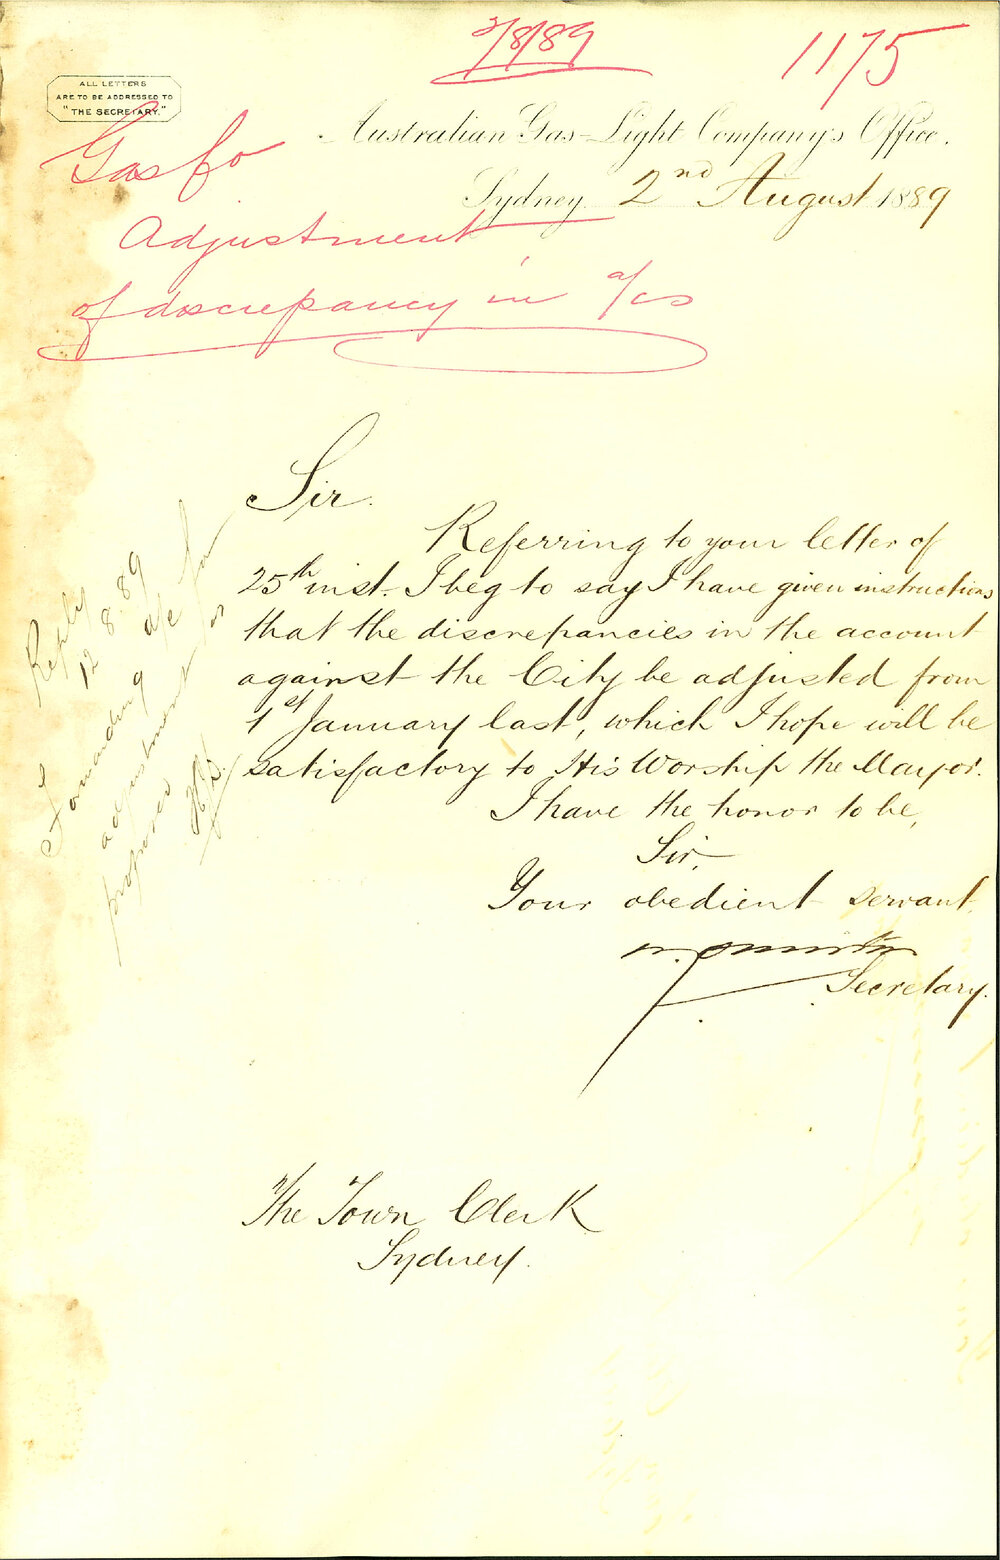 2/8/89
1175
ALL LETTERS
ARE TO BE ADDRESSED TO
"THE SECRETARY."
Australian Gas-Light Company's Office.
Sydney 2nd August 1889
Gas Co
Adjustment
of discrepancy in a/cs
Sir.
Referring to your letter of
25th inst. I beg to say I have given instructions
that the discrepancies in the account
against the City be adjusted from
1st January last, which I hope will be
satisfactory to His Worship the Mayor.
I have the honor to be,
Sir,
Your obedient servant,
Secretary.
Reply
12 8.89
Forwarding a/c for
adjustment as
proposed
The Town Clerk
Sydney.